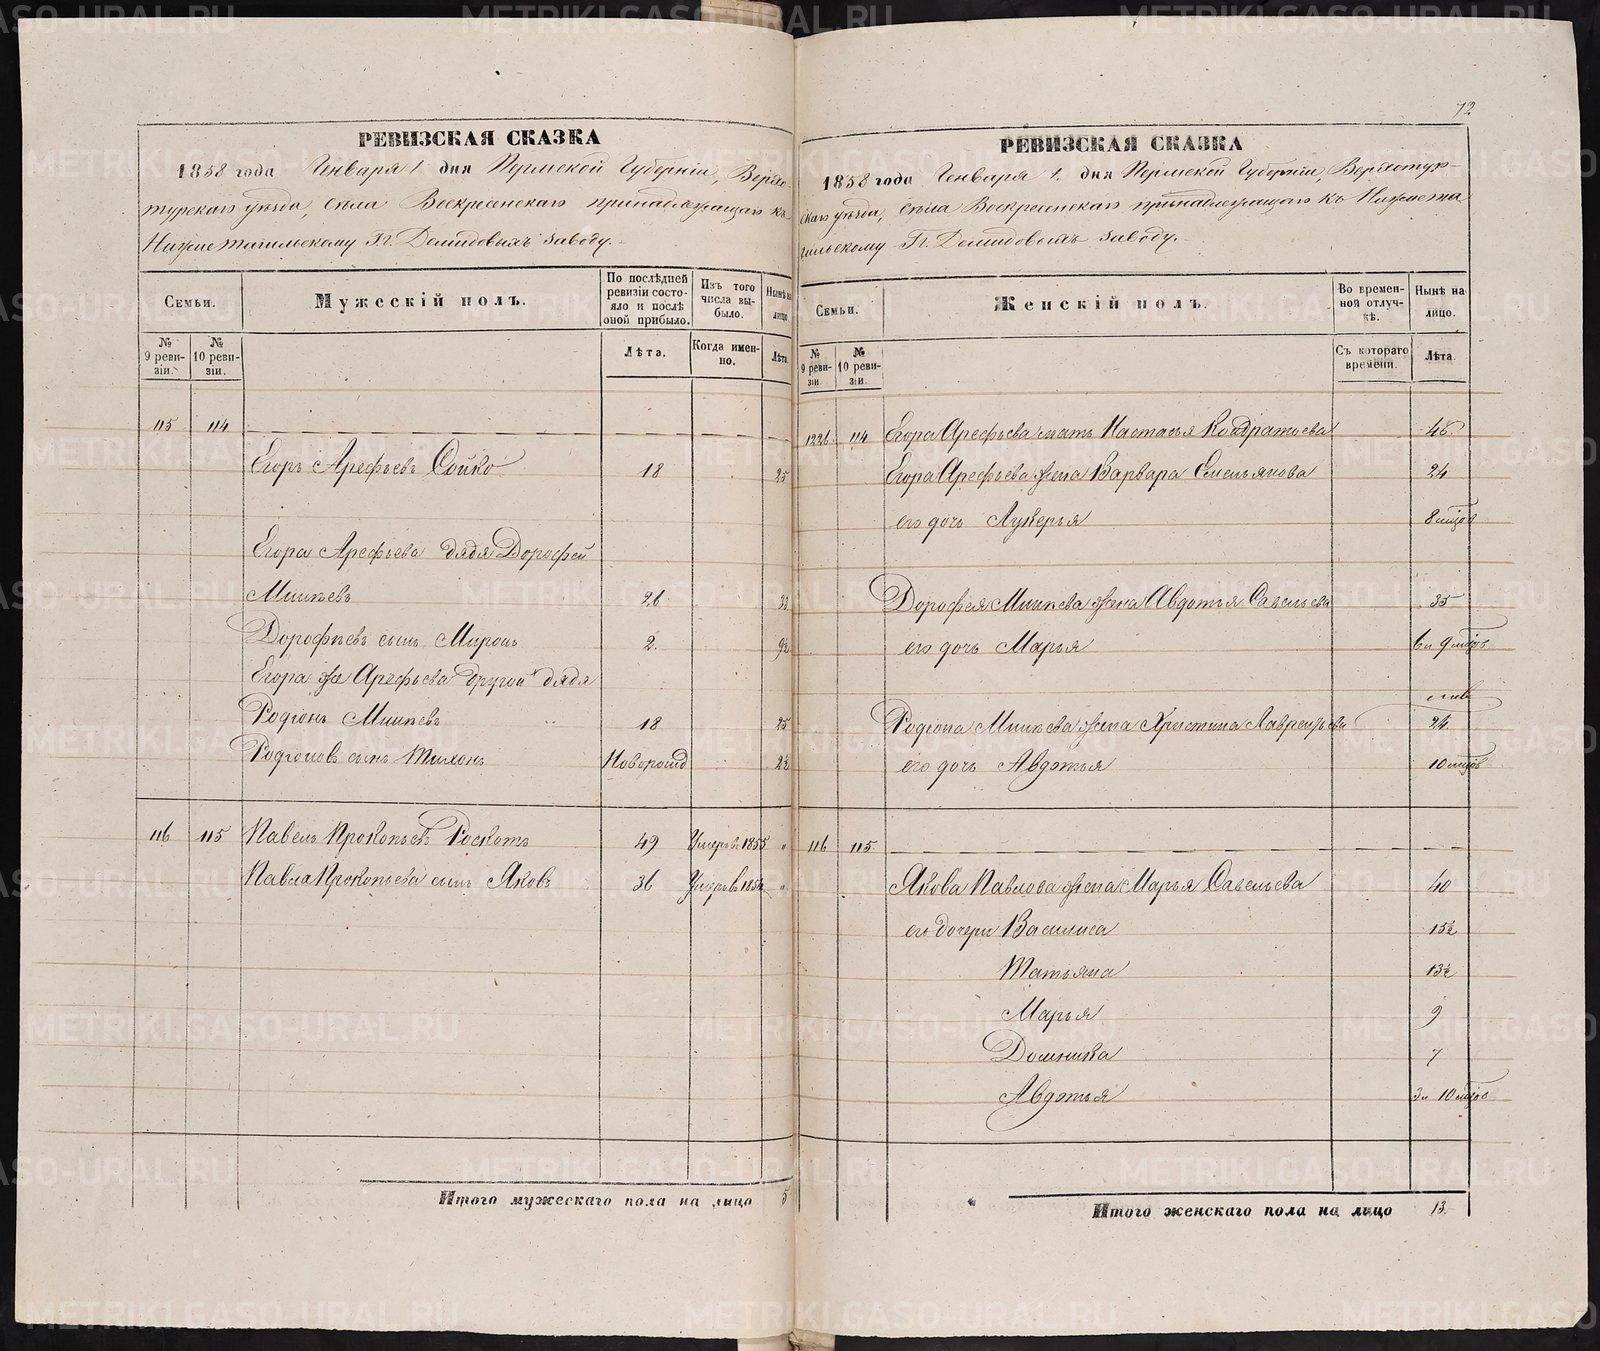 72
РЕВИЗСКАЯ СКАЗКА
1858 года Генваря 1 дня Пермской Губерніи, Верхо-
турскаго уѣзда, села Воскресенскаго принадлежащаго къ
Нижнетагильскому Гг. Демидовыхъ заводу.
Семьи.
Мужескій полъ.
По послѣдней ревизіи состояло и послѣ оной прибыло.
Изъ того числа выбыло.
Нынѣ на лицо.
№ 9 ревизіи.
№ 10 ревизіи.
Лѣта.
Когда именно.
Лѣта.
115 114
Егоръ Арефьевъ Сойко 18 25
Егора Арефьева дядя Дорофей
Минѣевъ 26 33
Дорофѣевъ сынъ Миронъ 2. 9½
Егора же Арефьева другой дядя
Родіонъ Минѣевъ 18 25
Родіоновъ сынъ Тихонъ Новорожд 2½
116 115 Павелъ Прокопьевъ Роскотъ 49 Умеръ въ 1855 "
Павла Прокопьева сынъ Яковъ 36 Умеръ въ "
Итого мужескаго пола на лицо 5
РЕВИЗСКАЯ СКАЗКА
1858 года Генваря 1. дня Пермской Губерніи, Верхотур-
скаго уѣзда, села Воскресенскаго принадлежащаго къ Нижнета
гильскому Гг. Демидовыхъ заводу.
Семьи.
Женскій полъ.
Во временной отлучкѣ.
Нынѣ на лицо.
№ 9 ревизіи.
№ 10 ревизіи.
Съ котораго времени.
Лѣта.
114 Егора Арефьева мать Настасья Кондратьева
Егора Арефьева жена Варвара Емельянова 24
его дочь Лукерья 8 мцовъ
Дорофея Минѣева жена Авдотья Савельева 35
его дочь Марья 6 и 9 мцовъ
Родіона Минѣева жена Христина Лаврентьева 24
его дочь Авдотья 10 мцовъ
116 115
Якова Павлова жена Марья Савельева 40
его дочери Василиса 15½
Татьяна 13½
Марья 9
Домника 7
Авдотья 3 и 10 мцовъ
Итого женскаго пола на лицо 13.
METRIKI.GASO-URAL.RU